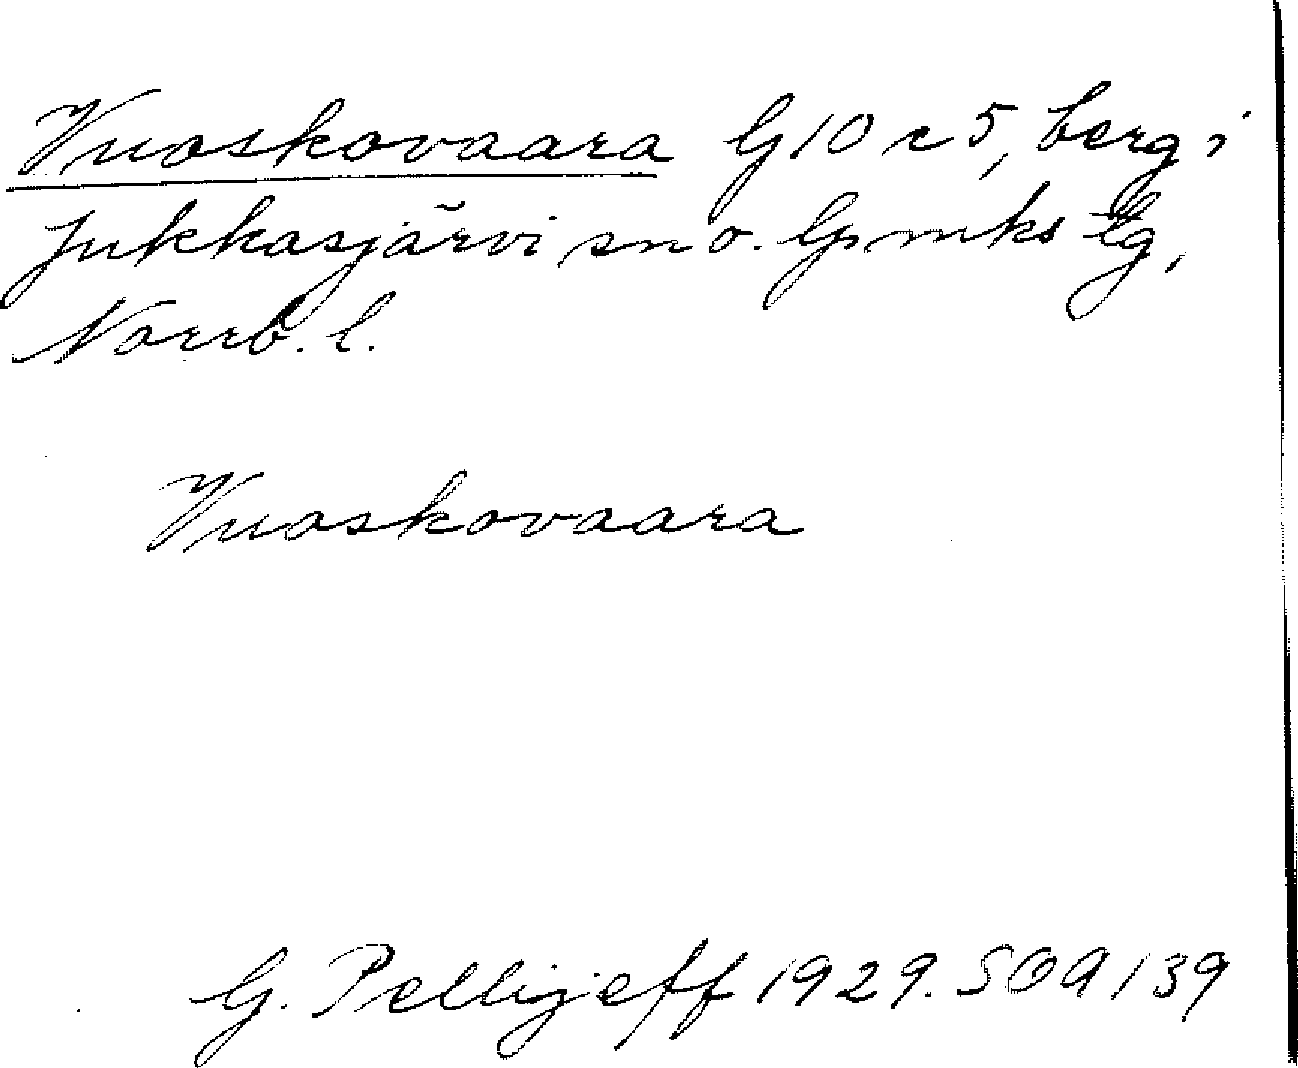 Vuoskovaara G10 c 5, berg i
Jukkasjärvi sn o. Gmks tg,
Norrb. l.
Vuoskovaara
G. Pellijeff 1929. SOA 139